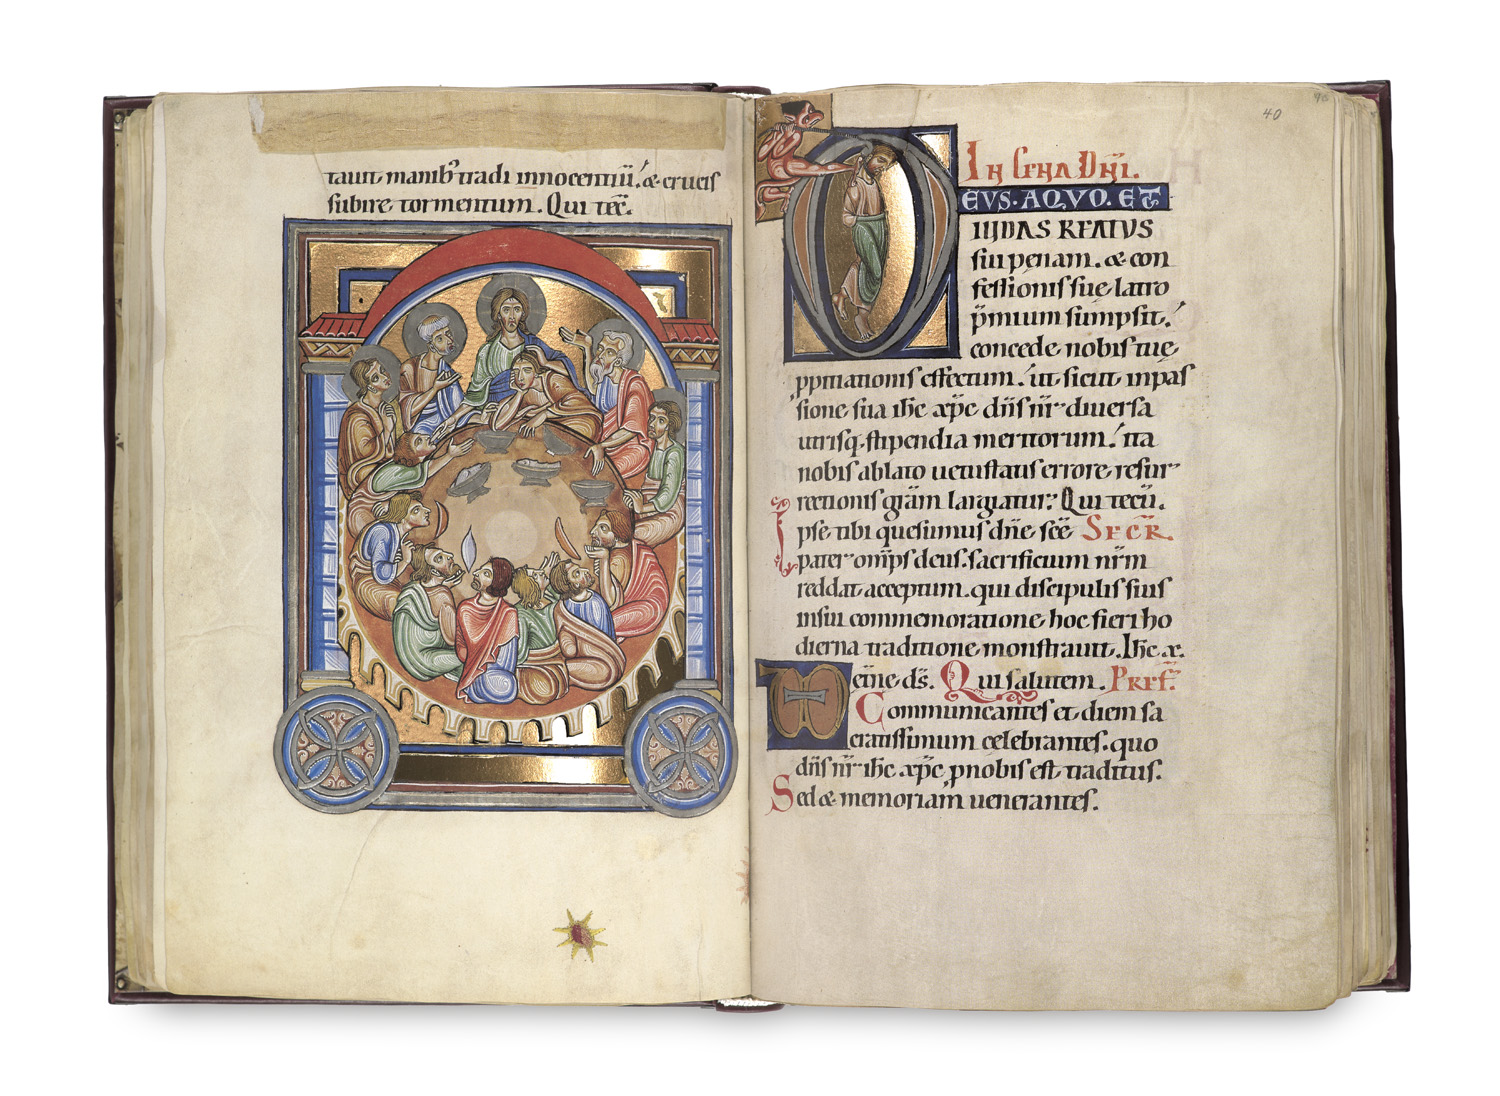 tauit manib᷒ tradi innocentiū. & crucis
subire tormentum. Qui tec̄.
40
In Cena Dn̄i.
DEVS. A QVO. ET
IUDAS REATUS
sui penam. & con
fessionis sue latro
p̄mium sumpsit.
concede nobis tuę
ꝓpitiationis effectum. ut sicut in pas
sione sua ih̄c xp̄c dn̄s nr̄ diuersa
utrisq. stipendia meritorum. ita
nobis ablato uetustatis errore. resur
rectionis grām largiatur. Qui tecū.
Ipse tibi quesumus dn̄e sc̄e SECR̄.
pater om̄ps deus. sacrificium nr̄m
reddat acceptum. qui discipulis suis
in sui commemoratione hoc fieri ho
dierna traditione monstrauit. Ih̄c x̄.
VD etn̄e ds̄. Qui salutem. PREF̄.
Communicantes et diem sa
cratissimum celebrantes. quo
dn̄s nr̄ ih̄c xp̄c p nobis est traditus.
Sed & memoriam uenerantes.